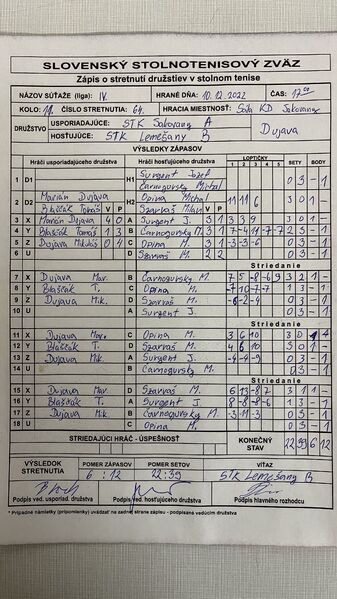 SLOVENSKÝ STOLNOTENISOVÝ ZVÄZ
Zápis o stretnutí družstiev v stolnom tenise
NÁZOV SÚŤAŽE (liga): IV. HRANÉ DŇA, 10.12.2022 ČAS: 17 00
KOLO: 11. ČÍSLO STRETNUTIA: 64. HRACIA MIESTNOSŤ: KD
DRUŽSTVO USPORIADAJÚCE: STK A Dujava
HOSŤUJÚCE: STK Lemešany B
VÝSLEDKY ZÁPASOV
Hráči usporiadajúceho družstva Hráči hosťujúceho družstva LOPTIČKY SETY BODY
1 2 3 4 5
1 D1 H1 Surgent Jozef 0 3 - 1
Čarnogursky Michal
2 D2 Marián Dujava H2 Opina Michal 11 11 6 3 0 1 -
Blaščák Tomáš V P Szarvaš Milan V P
3 X Marián Dujava 4 0 A Surgent J. 3 1 3 3 9 3 0 1 -
4 Y Blaščák Tomáš 1 3 B Čarnogursky M. 3 1 7 -4 11 -7 1 3 - 1
5 Z Dujava Mikuláš 0 4 C Opina M. 3 1 -3 -3 -6 0 3 - 1
6 U D Szarvaš M. 2 2 0 3 - 1
Striedanie
7 X Dujava Mar. B Čarnogursky M. 7 5 -8 -6 9 3 2 1 -
8 Y Blaščák T. C Opina M. -7 -10 -7 0 3 - 1
9 Z Dujava Mik. D Szarvaš M. -6 -2 -4 0 3 - 1
10 U A Surgent J. 0 3 - 1
Striedanie
11 X Dujava Mar. C Opina M. 3 6 10 3 0 1
12 Y Blaščák T. D Szarvaš M. 4 6 10 3 0 1 -
13 Z Dujava Mik. A Surgent J. -4 -4 -9 0 3 - 1
14 U B Čarnogursky M. 0 3 - 1
Striedanie
15 X Dujava M. D Szarvaš M. 6 13 -8 7 3 1 1 -
16 Y Blaščák T. A Surgent J. 8 -8 -8 -6 1 3 - 1
17 Z Dujava Mik. B Čarnogursky M. -3 -11 -3 0 3 - 1
18 U C Opina M. 0 3 - 1
STRIEDAJÚCI HRÁČ - ÚSPEŠNOSŤ KONEČNÝ STAV 22 39 6 12
VÝSLEDOK STRETNUTIA POMER ZÁPASOV POMER SETOV VÍŤAZ
6 : 12 22 : 39 STK Lemešany B
Podpis ved. usporiad. družstva Podpis ved. hosťujúceho družstva Podpis hlavného rozhodcu
* Prípadné námietky (pripomienky) uvádzať na zadnej strane zápisu - podpísaná vedúcim družstva